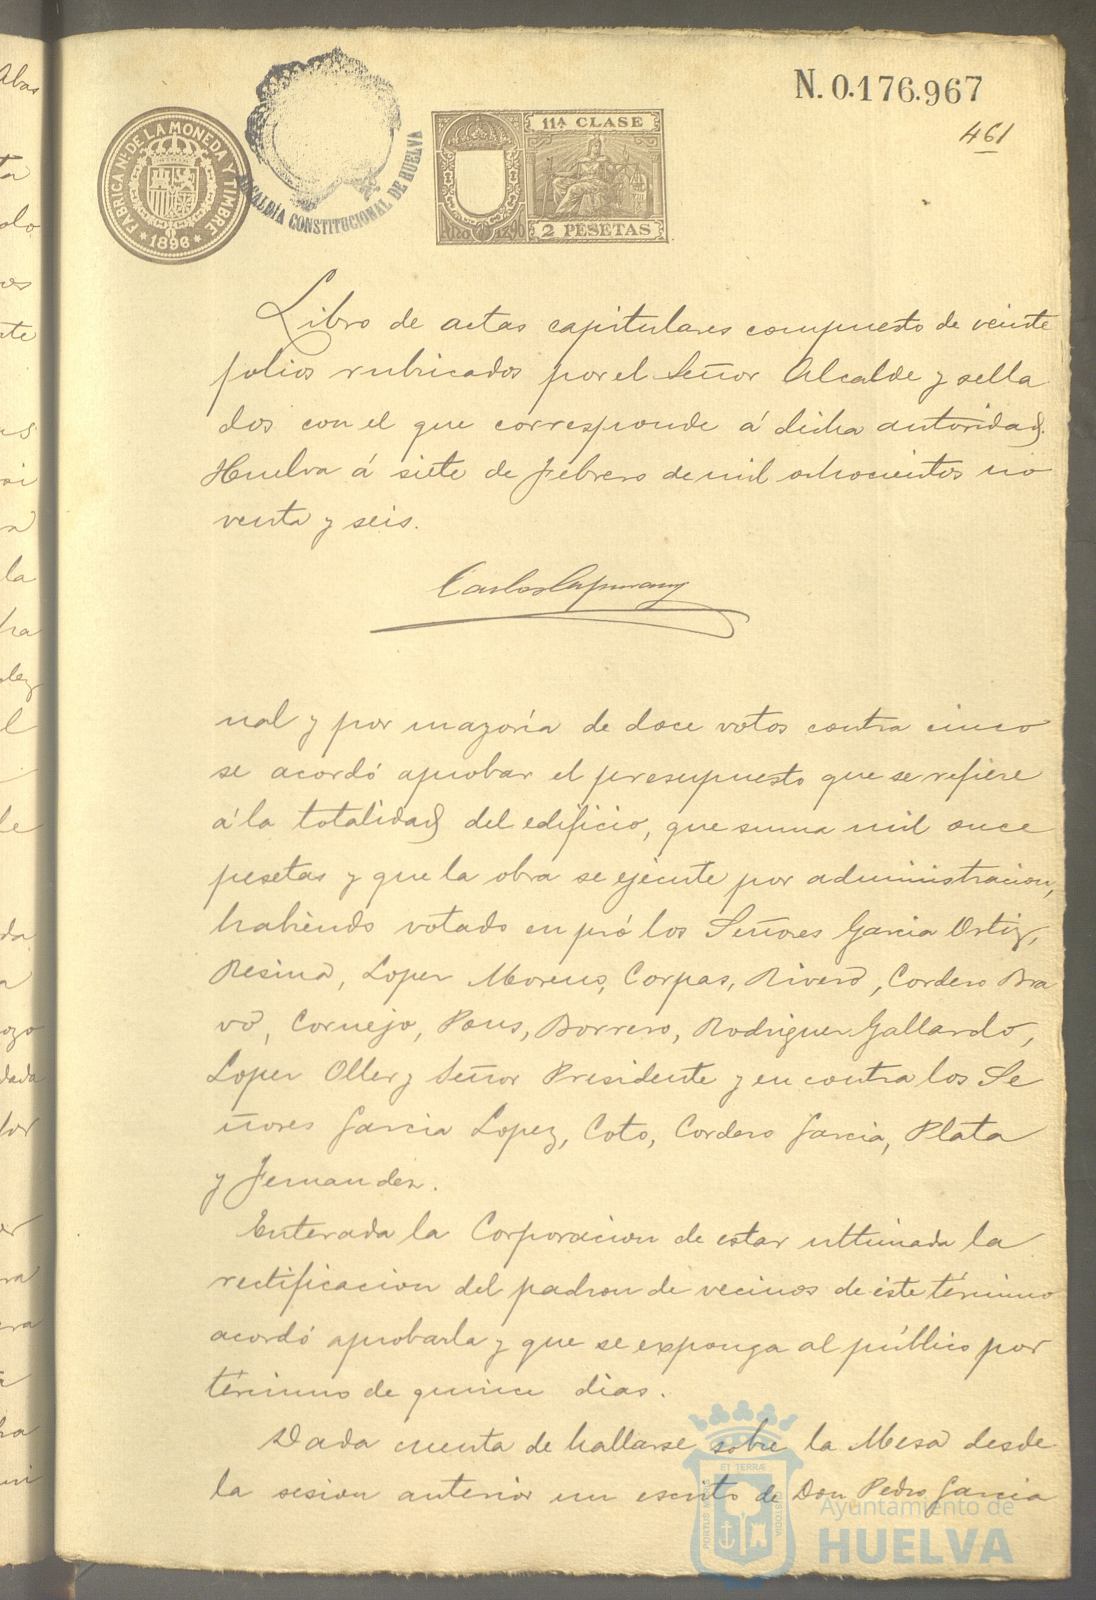 N. 0.176.967
461
FABRICA Nal. DE LA MONEDA Y TIMBRE
* 1896 *
ALCALDÍA CONSTITUCIONAL DE HUELVA
11ª CLASE
2 PESETAS
Libro de actas capitulares compuesto de veinte
folios rubricados por el Señor Alcalde y sella
dos con el que corresponde á dicha autoridad.
Huelva á siete de febrero de mil ochocientos no
venta y seis.
Carlos
nal y por mayoría de doce votos contra cinco
se acordó aprobar el presupuesto que se refiere
á la totalidad del edificio, que suma mil once
pesetas y que la obra se ejecute por administracion,
habiendo votado en pró los Señores Garcia Ortiz,
Resina, Lopez Moreno, Corpas, Rivero, Cordero Bra
vo, Cornejo, Pous, Borrero, Rodriguez Gallardo,
Lopez Oller y Señor Presidente y en contra los Se
ñores Garcia Lopez, Coto, Cordero Garcia, Plata
y Fernandez.
Enterada la Corporacion de estar ultimada la
rectificacion del padron de vecinos de este término
acordó aprobarla y que se exponga al público por
término de quince dias.
Dada cuenta de hallarse sobre la Mesa desde
la sesion anterior un escrito de Don Pedro Garcia
PORTUS MARIS ET TERRÆ CUSTODIA
Ayuntamiento de
HUELVA